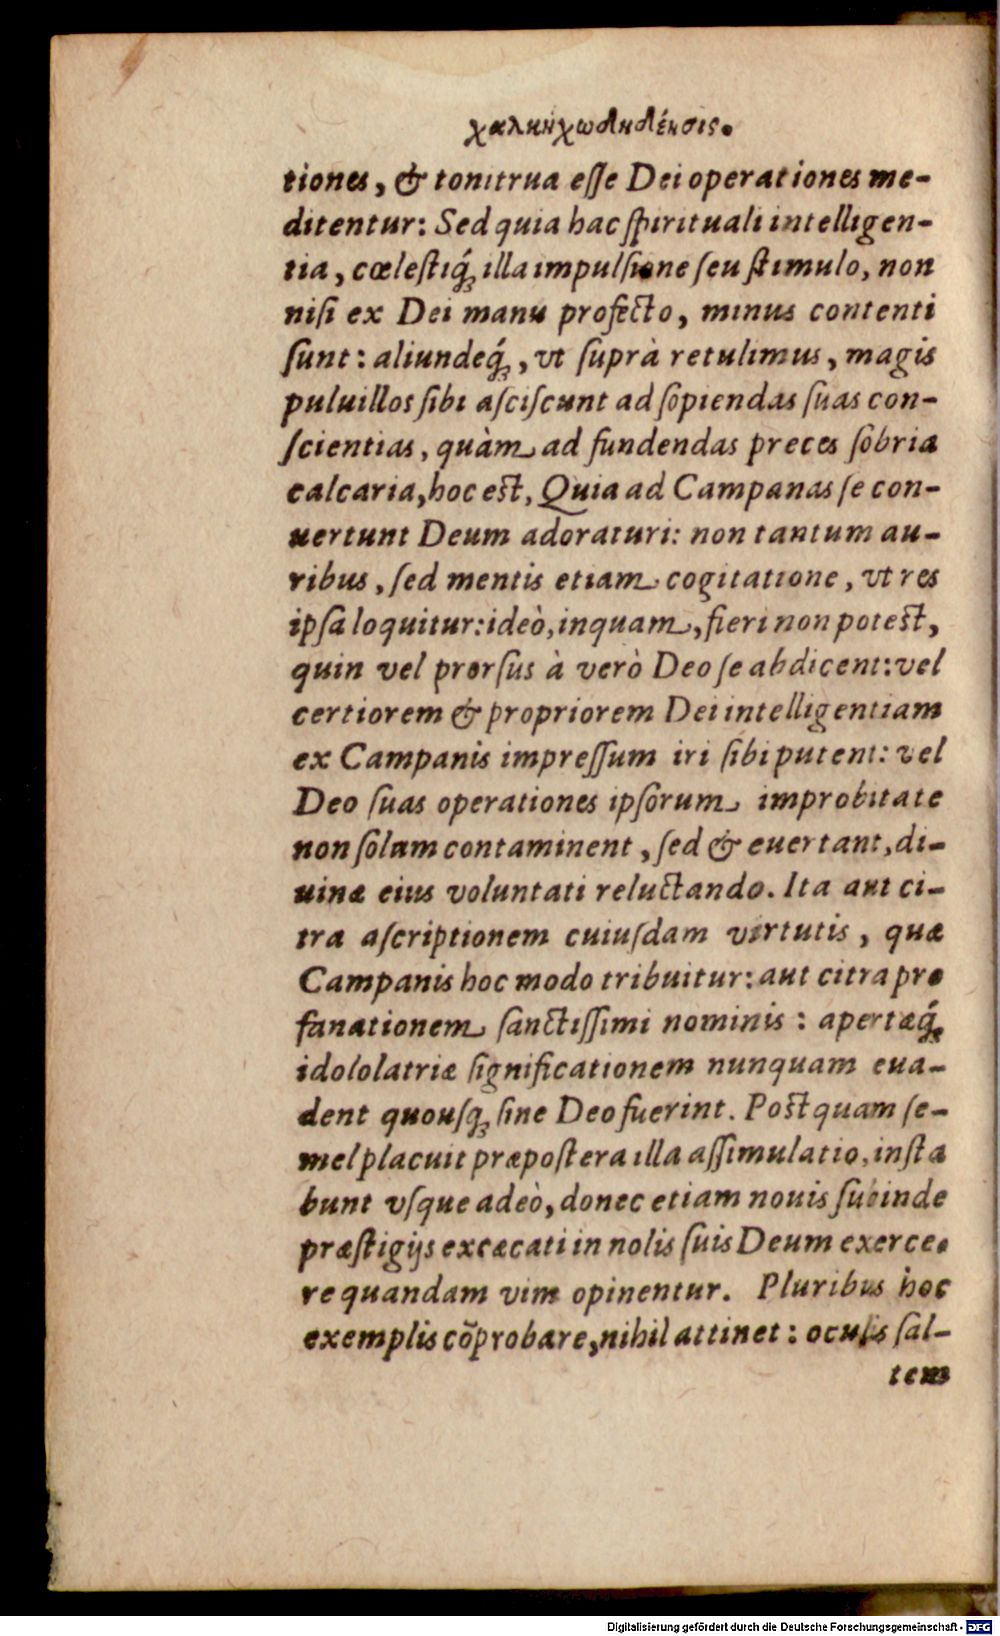 χαλκηχωδηδένσις.
tiones, & tonitrua eſſe Dei operationes me-
ditentur: Sed quia hac ſpirituali intelligen-
tia, cœleſtiq́; illa impulſione ſeu ſtimulo, non
niſi ex Dei manu profecto, minus contenti
ſunt: aliundeq́;, vt ſuprà retulimus, magis
puluillos ſibi aſciſcunt ad ſopiendas ſuas con-
ſcientias, quàm ad fundendas preces ſobria
calcaria, hoc eſt, Quia ad Campanas ſe con-
uertunt Deum adoraturi: non tantum au-
ribus, ſed mentis etiam cogitatione, vt res
ipſa loquitur: ideò, inquam, fieri non poteſt,
quin vel prorſus à verò Deo ſe abdicent: vel
certiorem & propriorem Dei intelligentiam
ex Campanis impreſſum iri ſibi putent: vel
Deo ſuas operationes ipſorum improbitate
non ſolum contaminent, ſed & euertant, di-
uinæ eius voluntati reluctando. Ita aut ci-
tra aſcriptionem cuiuſdam virtutis, quæ
Campanis hoc modo tribuitur: aut citra pro
fanationem ſanctiſſimi nominis: apertæq́;
idololatriæ ſignificationem nunquam eua-
dent quouſq; ſine Deo fuerint. Poſtquam ſe-
mel placuit præpoſtera illa aſſimulatio, inſta
bunt vſque adeò, donec etiam nouis ſubinde
præſtigijs excæcati in nolis ſuis Deum exerce-
re quandam vim opinentur. Pluribus hoc
exemplis cõprobare, nihil attinet: oculis ſal-
tem
Digitalisierung gefördert durch die Deutsche Forschungsgemeinschaft - DFG